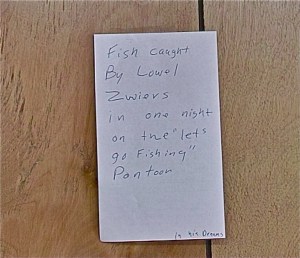 Fish caught
By Lowel
Zwiers
in one night
on the "lets
go Fishing"
Pontoon
In his Dreams